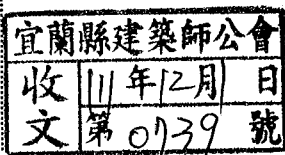 宜蘭縣建築師公會
收文 111年12月1日
第0739號